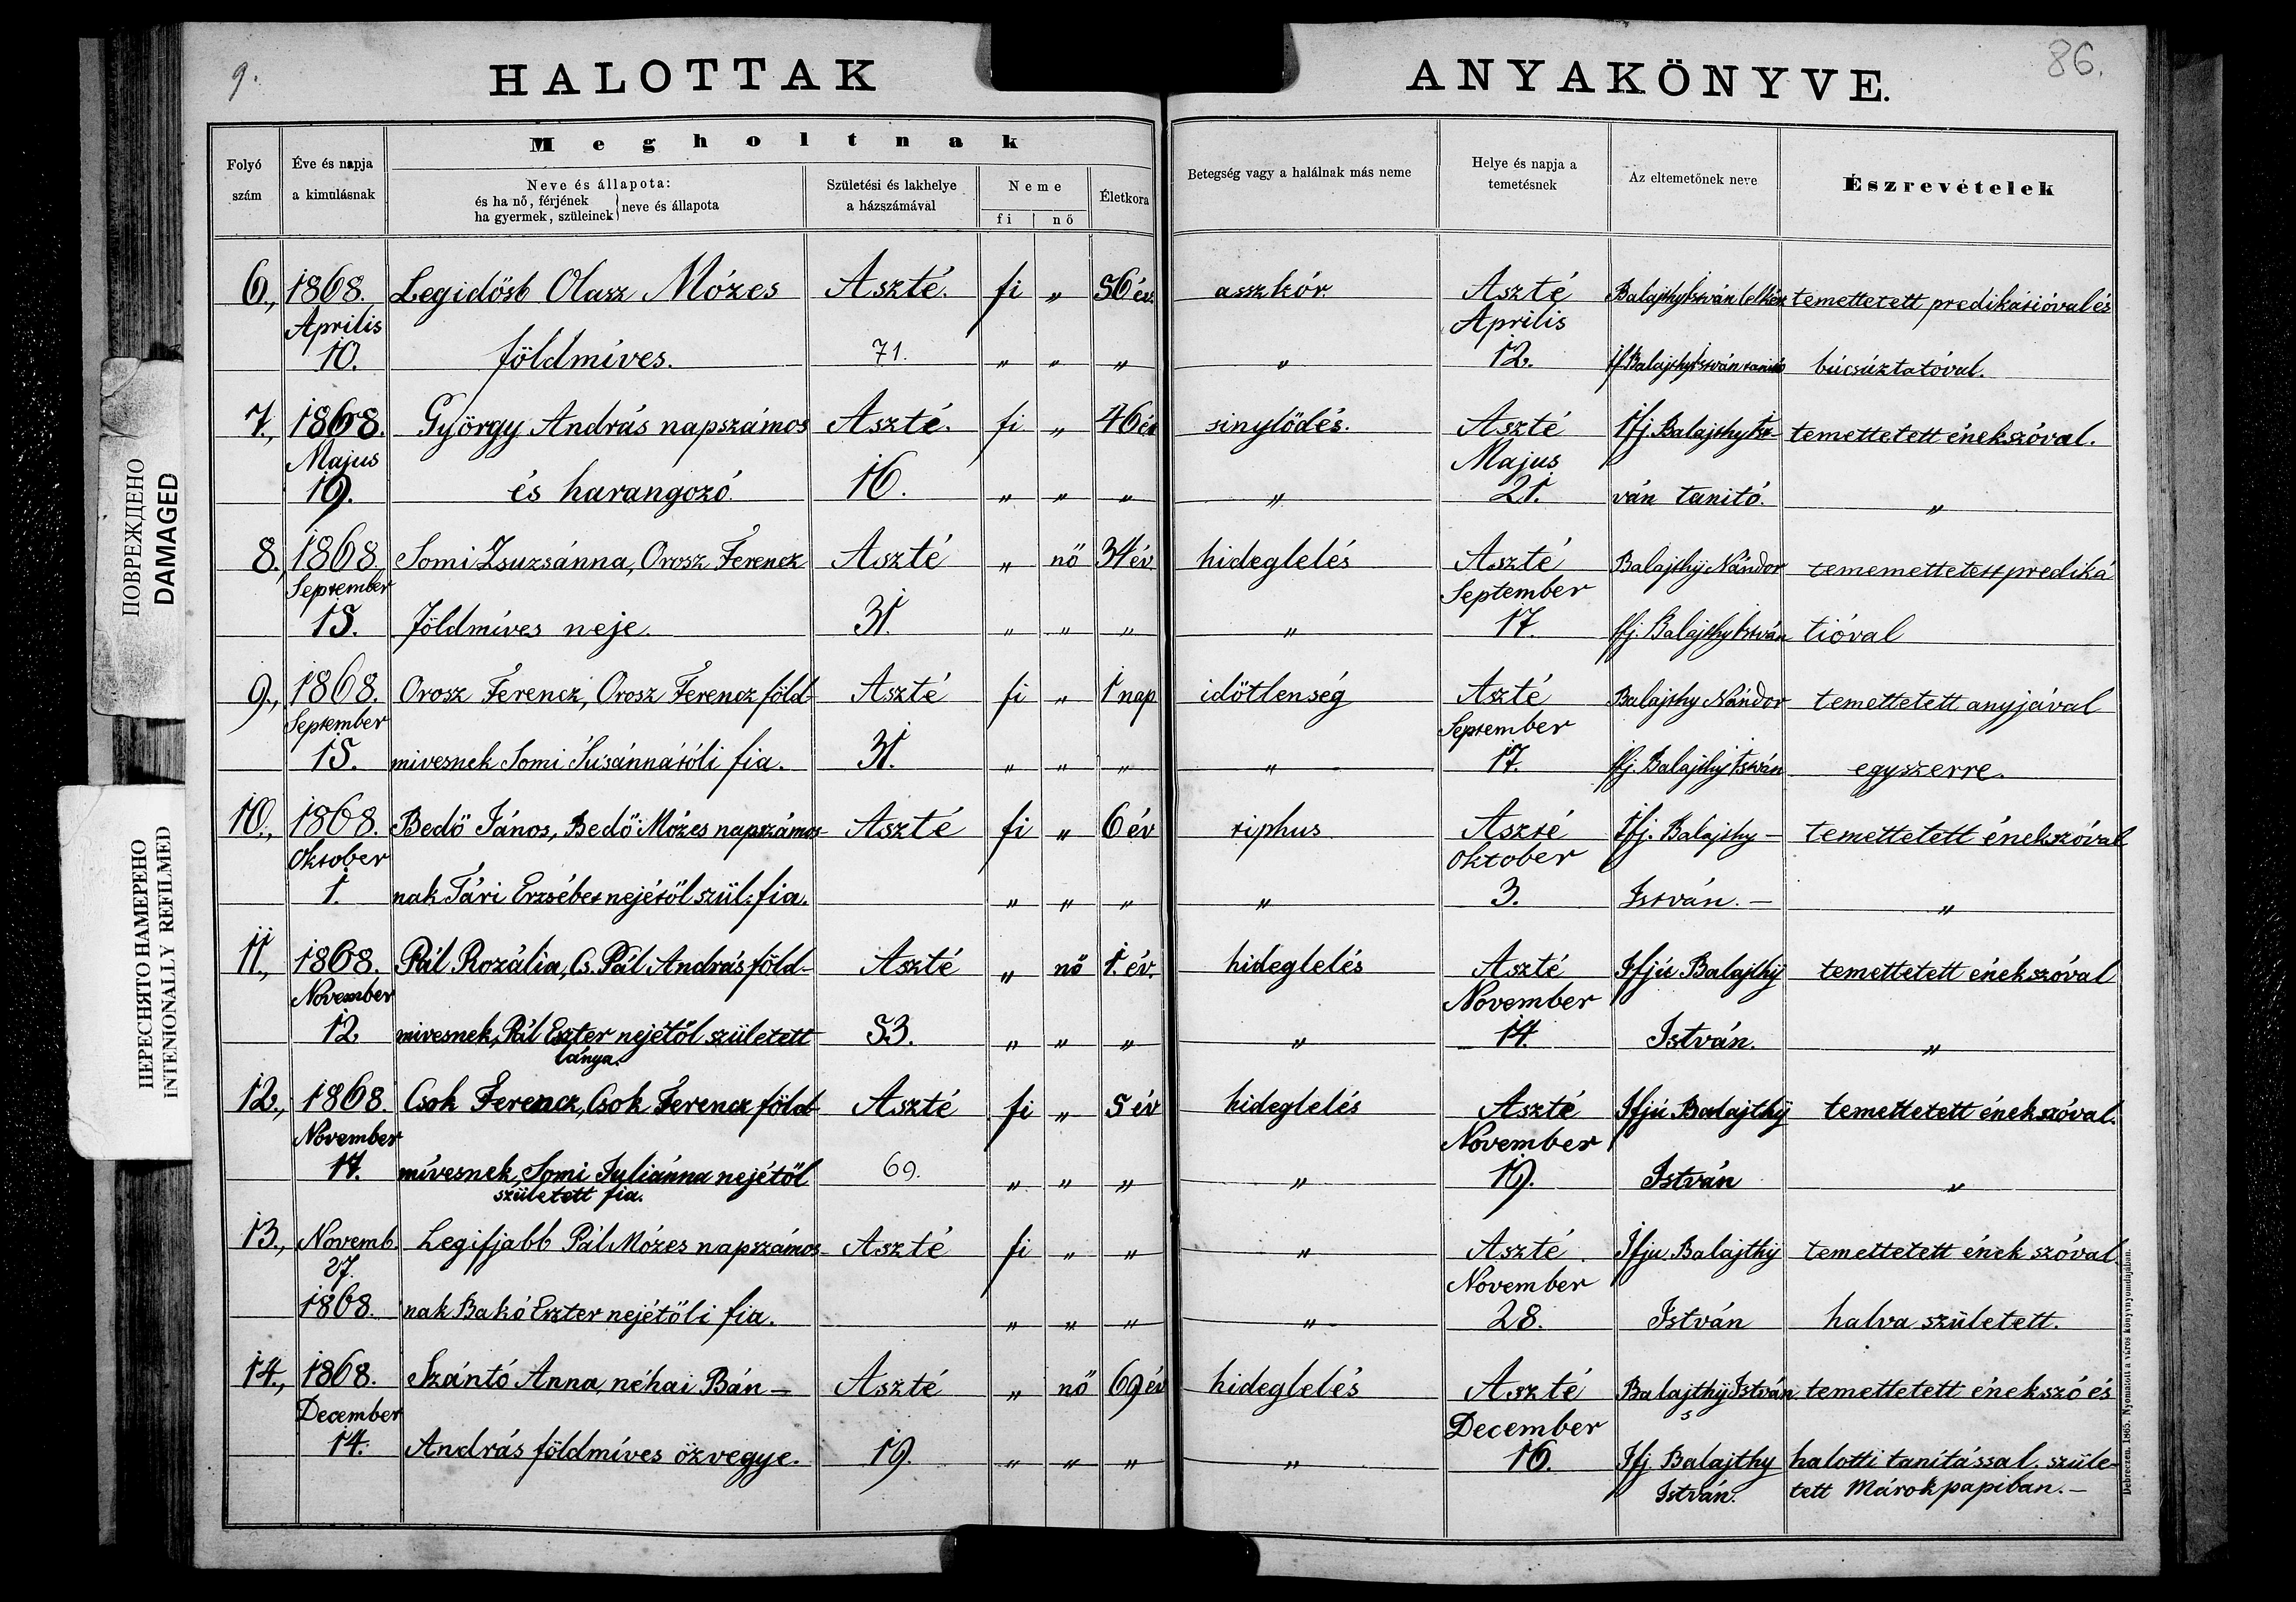 9.
HALOTTAK
ANYAKÖNYVE.
86.
Folyó szám
Éve és napja a kimulásnak
Megholtnak
Neve és állapota:
és ha nő, férjének
ha gyermek, szüleinek
neve és állapota
Születési és lakhelye a házszámával
Neme
fi nő
Életkora
Betegség vagy a halálnak más neme
Helye és napja a temetésnek
Az eltemetőnek neve
Észrevételek
6., 1868. Legidősb Olasz Mózes Aszté. fi „ 56 év. aszkór. Aszté Balajthy István lelkész temettetett predikátióval és
Április Április
10. földmíves. 71. „ „ „ „ 12. if. Balajthy István tanító búcsúztatóval.
7., 1868. György András napszámos Aszté. fi „ 46 év sinylődés. Aszté Ifj. Balajthy Ist- temettetett énekszóval.
Majus Majus
19. és harangozó. 16. „ „ „ „ 21. ván tanitó. „
8., 1868. Somi Zsuzsánna, Orosz Ferencz Aszté „ nő 34 év hideglelés Aszté Balajthy Nándor tememettetett prediká
September September
15. földmíves neje. 31. „ „ „ „ 17. Ifj. Balajthy István tióval
9., 1868. Orosz Ferencz, Orosz Ferencz föld- Aszté fi „ 1 nap idötlenség Aszté Balajthy Nándor temettetett anyjával
September September
15. mivesnek Somi Susánnátóli fia. 31. „ „ „ „ 17. Ifj. Balajthy István egyszerre.
10., 1868. Bedö János, Bedö Mózes napszámos- Aszté fi „ 6 év tiphus Aszté Ifj. Balajthy - temettetett énekszóval
Oktober Oktober
1. nak Tári Erzsébet nejétöl szül: fia. „ „ „ „ 3. István. - „
11., 1868. Pál Rozália, Cs. Pál András föld- Aszté „ nő 1. év. hideglelés Aszté Ifjú Balajthÿ temettetett énekszóval
November November
12. mivesnek, Pál Eszter nejétől született 53. „ „ „ „ 14. István. „
lánya.
12., 1868. Csok Ferencz, Csok Ferencz föld- Aszté fi „ 5 év hideglelés Aszté Ifjú Balajthÿ temettetett énekszóval.
November November
17. mívesnek, Somi Juliánna nejétől 69. „ „ „ „ 19. István „
született fia.
13., Novemb. Legifjabb Pál Mózes napszámos- Aszté fi „ „ „ Aszté. Ifju Balajthÿ temettetett ének szóval.
27. November
1868. nak Bakó Eszter nejétöli fia. „ „ „ „ 28. István halva született.
14., 1868. Szántó Anna, néhai Bán - Aszté „ nő 69 év hideglelés Aszté Balajthÿ István temettetett énekszó és
December December s
14. András földmíves özvegye. 19. „ „ „ „ 16. Ifj. Balajthy halotti tanítással. szüle-
István. tett Márokpapiban. -
Debreczen, 1865. Nyomatott a város könyvnyomdájában.
ПОВРЕЖДЕНО
DAMAGED
ПЕРЕСНЯТО НАМЕРЕНО
INTENIONALLY REFILMED